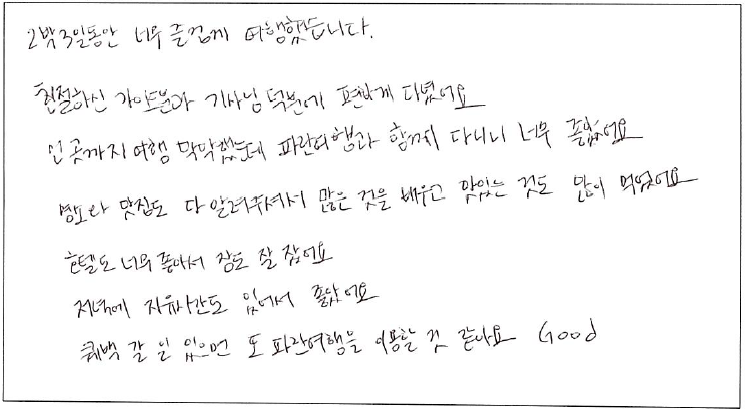 2박3일동안 너무 즐겁게 여행했습니다.
친절하신 가이드분과 기사님 덕분에 편하게 다녔어요
먼 곳까지 여행 막막했는데 파란여행과 함께 다니니 너무 좋았어요
명소와 맛집도 다 알려주셔서 많은 것을 배우고 맛있는 것도 많이 먹었어요
호텔도 너무 좋아서 잠도 잘 잤어요
저녁에 자유시간도 있어서 좋았어요
퀘백 갈 일 있으면 또 파란여행을 이용할 것 같아요 Good